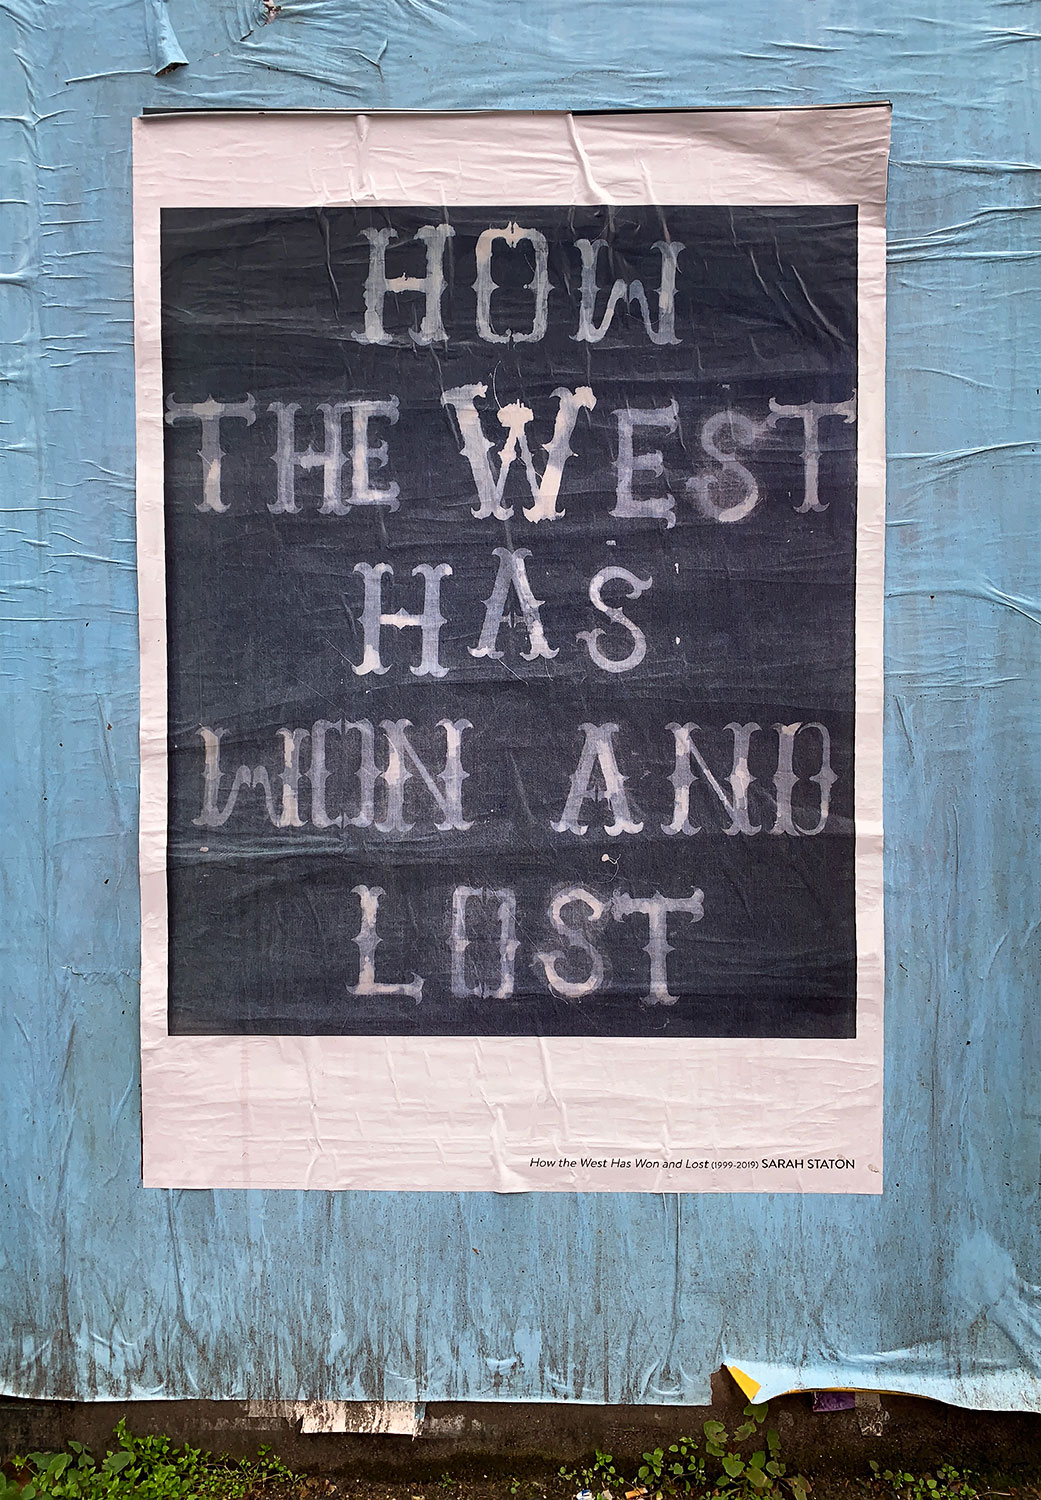 HOW
THE WEST
HAS
WON AND
LOST
How the West Has Won and Lost (1999-2019) SARAH STATON